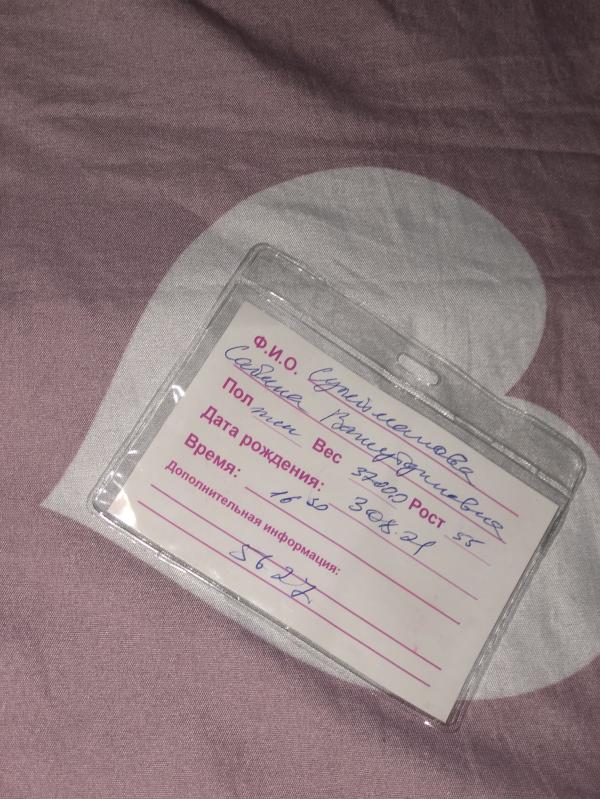 Ф.И.О. Сулейманова
Сабина
Пол жен Вес 3700 Рост 55
Дата рождения: 30.8.21
Время: 16 50
Дополнительная информация:
5627